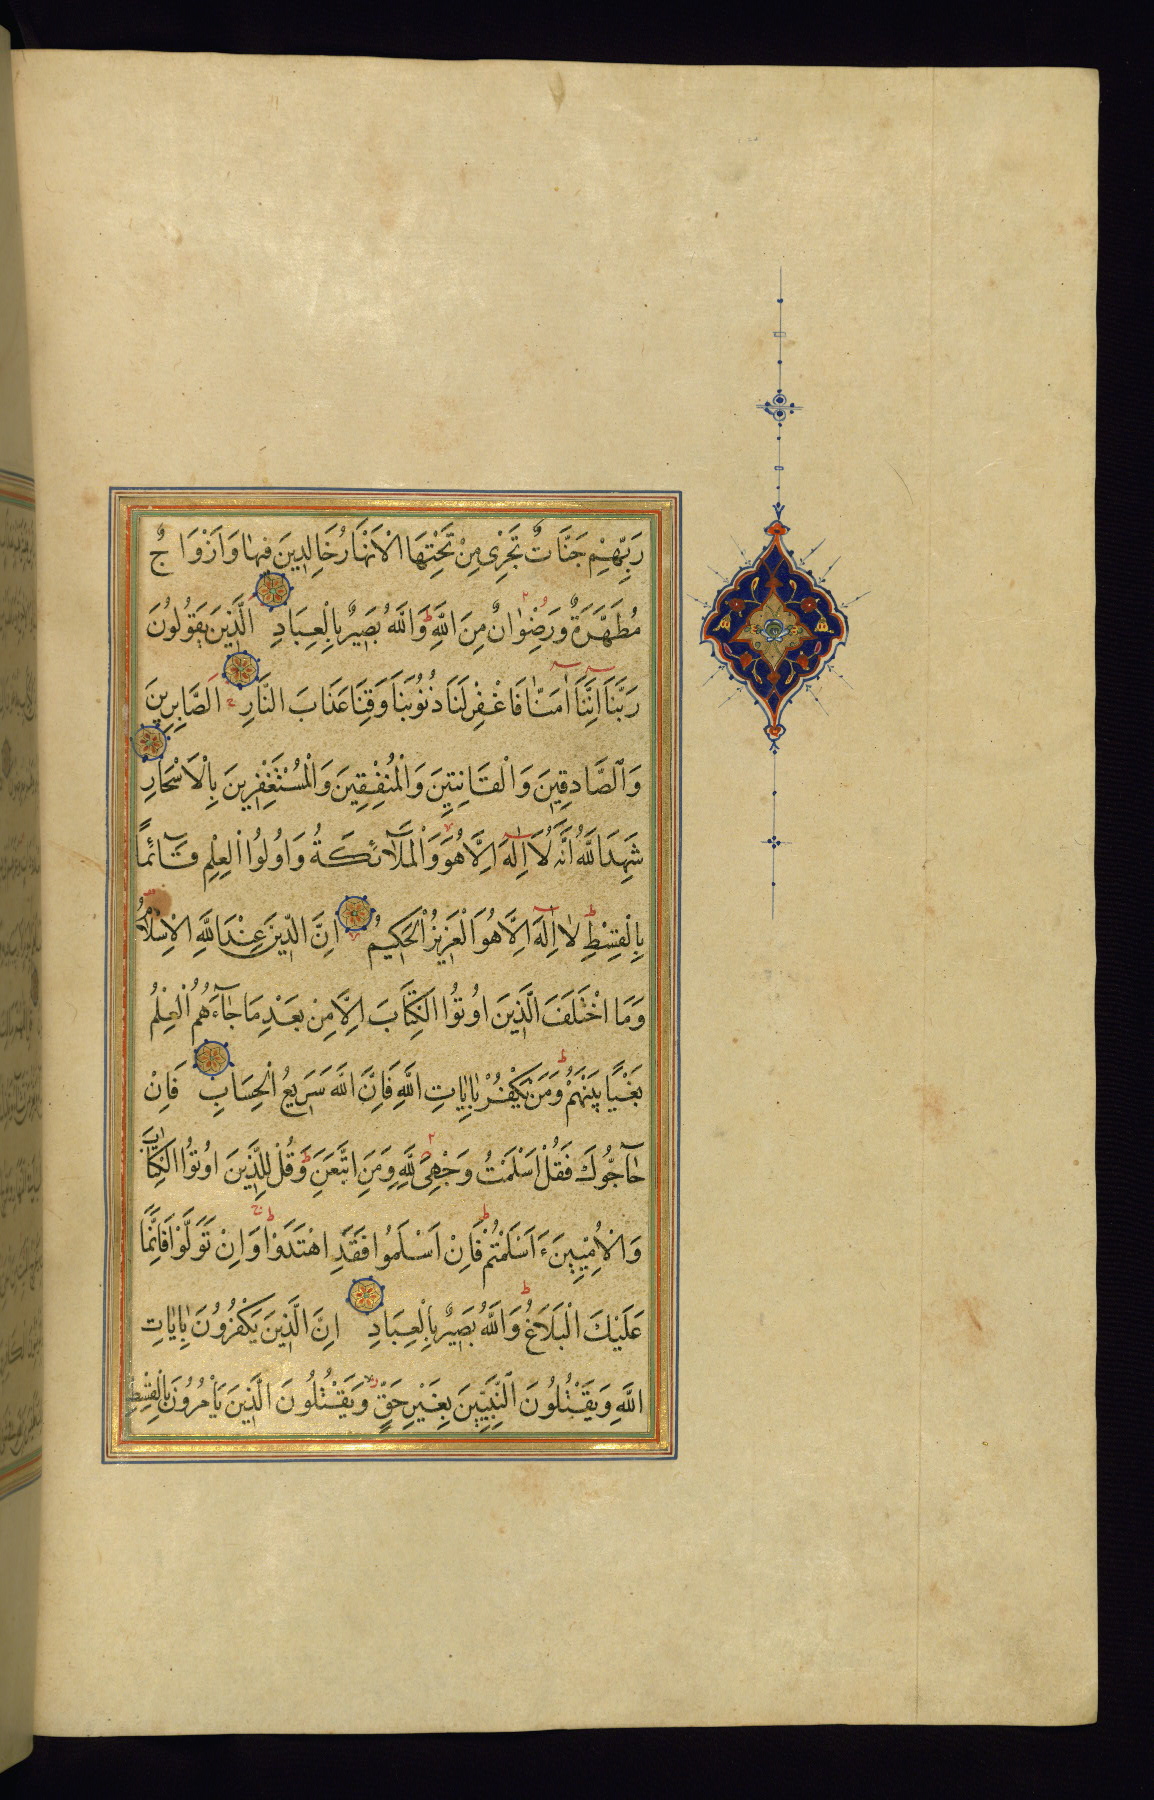 رَبِّهِمْ جَنَّاتٌ تَجْرِى مِنْ تَحْتِهَا الْاَنْهَارُ خَالِدِينَ فِيهَا وَاَزْوَاجٌ
مُطَهَّرَةٌ وَرِضْوَانٌ مِنَ اللَّهِ وَاللَّهُ بَصِيرٌ بِالْعِبَادِ اَلَّذِينَ يَقُولُونَ
رَبَّنَا اِنَّنَا اٰمَنَّا فَاغْفِرْ لَنَا ذُنُوبَنَا وَقِنَا عَذَابَ النَّارِ اَلصَّابِرِينَ
وَالصَّادِقِينَ وَالْقَانِتِينَ وَالْمُنْفِقِينَ وَالْمُسْتَغْفِرِينَ بِالْاَسْحَارِ
شَهِدَ اللَّهُ اَنَّهُ لَا اِلٰهَ اِلَّا هُوَ وَالْمَلَآئِكَةُ وَاُولُوا الْعِلْمِ قَآئِمًا
بِالْقِسْطِ لَا اِلٰهَ اِلَّا هُوَ الْعَزِيزُ الْحَكِيمُ اِنَّ الدِّينَ عِنْدَ اللَّهِ الْاِسْلَامُ
وَمَا اخْتَلَفَ الَّذِينَ اُوتُوا الْكِتَابَ اِلَّا مِنْ بَعْدِ مَا جَآءَهُمُ الْعِلْمُ
بَغْيًا بَيْنَهُمْ وَمَنْ يَكْفُرْ بِاٰيَاتِ اللَّهِ فَاِنَّ اللَّهَ سَرِيعُ الْحِسَابِ فَاِنْ
حَآجُّوكَ فَقُلْ اَسْلَمْتُ وَجْهِىَ لِلَّهِ وَمَنِ اتَّبَعَنِ وَقُلْ لِلَّذِينَ اُوتُوا الْكِتَابَ
وَالْاُمِّيِّينَ ءَاَسْلَمْتُمْ فَاِنْ اَسْلَمُوا فَقَدِ اهْتَدَوْا وَاِنْ تَوَلَّوْا فَاِنَّمَا
عَلَيْكَ الْبَلَاغُ وَاللَّهُ بَصِيرٌ بِالْعِبَادِ اِنَّ الَّذِينَ يَكْفُرُونَ بِاٰيَاتِ
اللَّهِ وَيَقْتُلُونَ النَّبِيِّينَ بِغَيْرِ حَقٍّ وَيَقْتُلُونَ الَّذِينَ يَاْمُرُونَ بِالْقِسْطِ